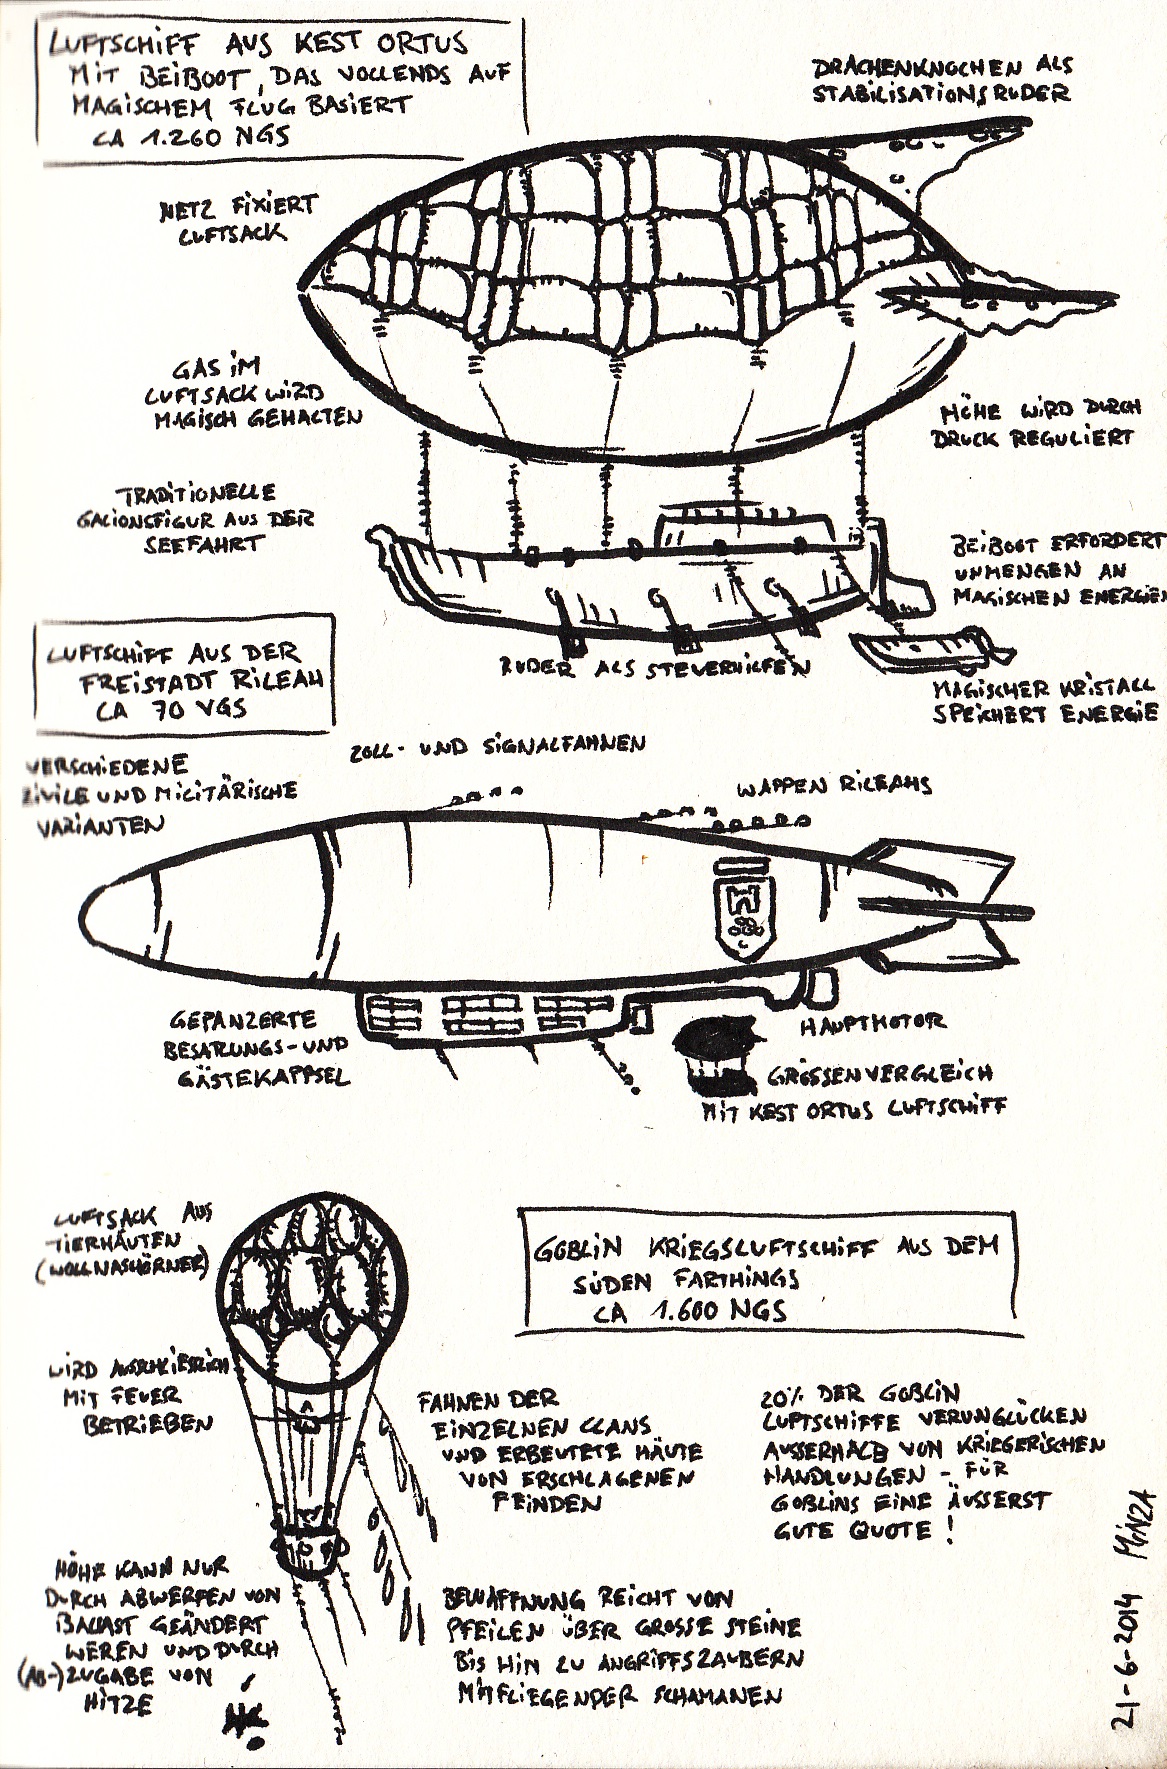 LUFTSCHIFF AUS KEST ORTUS
MIT BEIBOOT, DAS VOLLENDS AUF
MAGISCHEM FLUG BASIERT
CA 1.260 NGS
DRACHENKNOCHEN ALS
STABILISATIONSRUDER
NETZ FIXIERT
LUFTSACK
GAS IM
LUFTSACK WIRD
MAGISCH GEHALTEN
HÖHE WIRD DURCH
DRUCK REGULIERT
TRADITIONELLE
GALIONSFIGUR AUS DER
SEEFAHRT
BEIBOOT ERFORDERT
UNMENGEN AN
MAGISCHEN ENERGIEN
RUDER ALS STEUERHILFEN
MAGISCHER KRISTALL
SPEICHERT ENERGIE
LUFTSCHIFF AUS DER
FREISTADT RILEAH
CA 70 VGS
VERSCHIEDENE
ZIVILE UND MILITÄRISCHE
VARIANTEN
ZOLL- UND SIGNALFAHNEN
WAPPEN RILEAHS
GEPANZERTE
BESATZUNGS- UND
GÄSTEKAPPSEL
HAUPTMOTOR
GRÖSSENVERGLEICH
MIT KEST ORTUS LUFTSCHIFF
LUFTSACK AUS
TIERHÄUTEN
(WOLLNASHÖRNER)
GOBLIN KRIEGSLUFTSCHIFF AUS DEM
SÜDEN FARTHINGS
CA 1.600 NGS
WIRD AUSSCHLIESSLICH
MIT FEUER
BETRIEBEN
FAHNEN DER
EINZELNEN CLANS
UND ERBEUTETE HÄUTE
VON ERSCHLAGENEN
FEINDEN
20% DER GOBLIN
LUFTSCHIFFE VERUNGLÜCKEN
AUSSERHALB VON KRIEGERISCHEN
HANDLUNGEN - FÜR
GOBLINS EINE ÄUSSERST
GUTE QUOTE!
HÖHE KANN NUR
DURCH ABWERFEN VON
BALLAST GEÄNDERT
WEREN UND DURCH
(AB-)ZUGABE VON
HITZE
BEWAFFNUNG REICHT VON
PFEILEN ÜBER GROSSE STEINE
BIS HIN ZU ANGRIFFSZAUBERN
MITFLIEGENDER SCHAMANEN
21-6-2014 MINZA